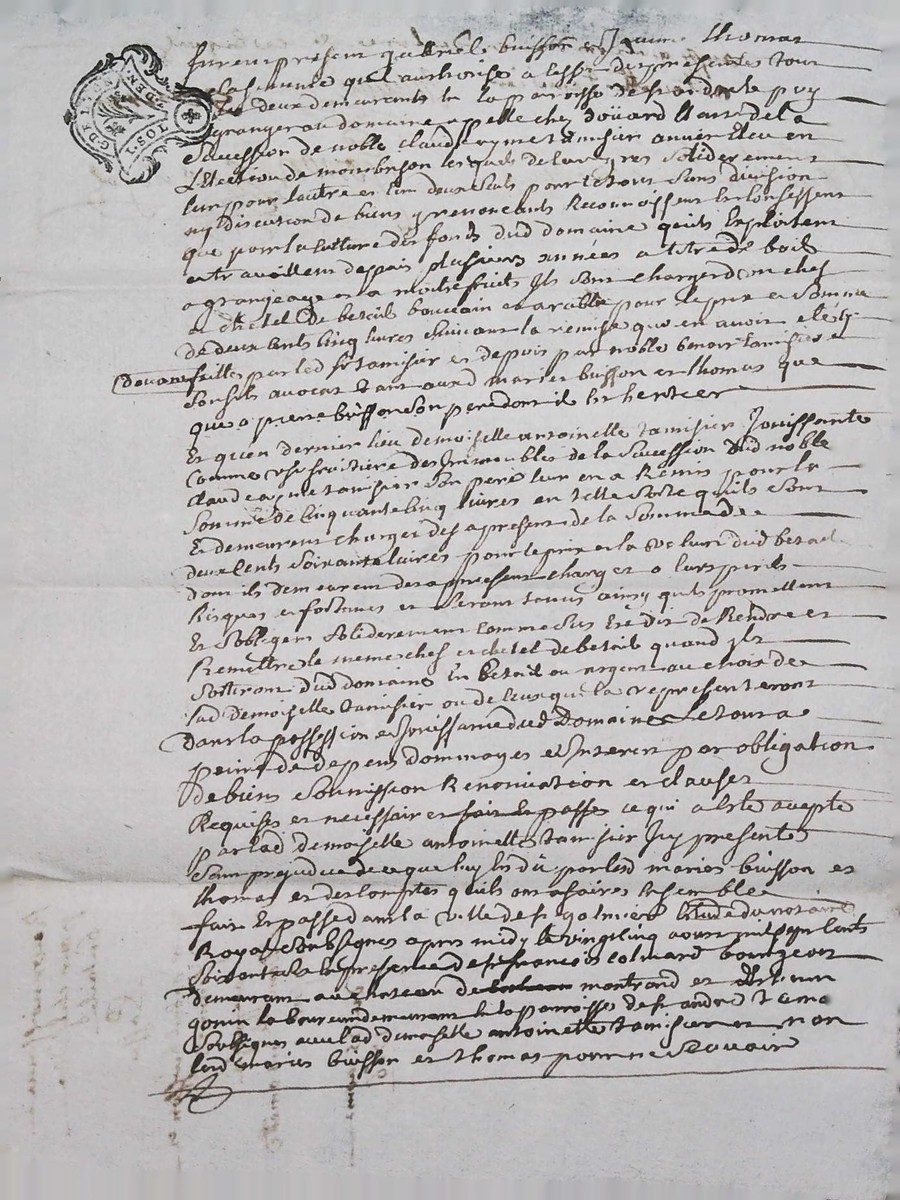 furent présent gabriel buisson et Jeanne thomas
sa femme quil authorise a leffet des présentes tous
les deux demeurants en la paroisse de st andre le puy
grangers au domaine appelle chez Doüard de la
succession de noble claude aymé tamisier ancien Eleu en
L'Election de montbrison lesquels de leurs grés soliderement
lun pour lautre et lun deux seuls pour le tout sans division
ny discution de biens y renonçants Reconnoissent et Confessent
que pour la culture des fonds dud domaine quils Exploitent
et travaillent depuis plusieurs années a titre de bail
a grangeage et a moitié fruits Ils sont chargés dun chef
et chetel de betail bouvain et arable pour le prix et somme
de deux cents cinq livres suivant la remise que en avoit eté cy
devant faitte par led sr tamisier et depuis par noble benoit tamisier
son fils avocat tant aux d mariés buisson et thomas que
que a pierre buisson son pere dont il Est heritier
Et quen dernier lieu demoiselle antoinelle tamisier Jouissante
comme usufruitiere des Immeubles de la succession dud noble
claude aymé tamisier son pere leur en a Remis pour la
somme de cinquante cinq livres en telle sorte quils sont
Et demeurent chargés des a present de la somme de
deux cents soixante livres pour le prix et la valeur dud betail
dont ils demeurent des a present chargés a leurs perils
Risques et fortunes et seront tenus ainsy quils promettent
Et Sobligent soliderement comme sus Est dit de Rendre et
Remettre le meme chef et chetel de betail quand Ils
sortiront dud domaine En betail ou argent au choix de
lad demoiselle tamisier ou de ceux qui la representeront
dans la possession et Jouissance dud Domaine Le tout a
peine de depens dommages et Interets par obligation
de biens soumission Renonciation et clauses
Requises et necessaires fait Et passé ce qui a Eté accepté
par lad demoiselle antoinelle tamisier Icy presente
sans prejudice de ce que luy Est dû par lesd mariés buisson et
thomas et des comptes quils ont a faires Ensemble
fait Et passé dans la ville de st galmier Etude du notaire
Royal soussigné apres midy le vingt cinq aoust mil sept cents
soixante En presence de sr francois colmard bourgeois
demeurant au chateau de montrond et
gonin laboureur demeurant En la paroisse de st andré
soussignés avec lad demoiselle antoinette tamisier et non
lesd mariés buisson et thomas pour ne scavoir